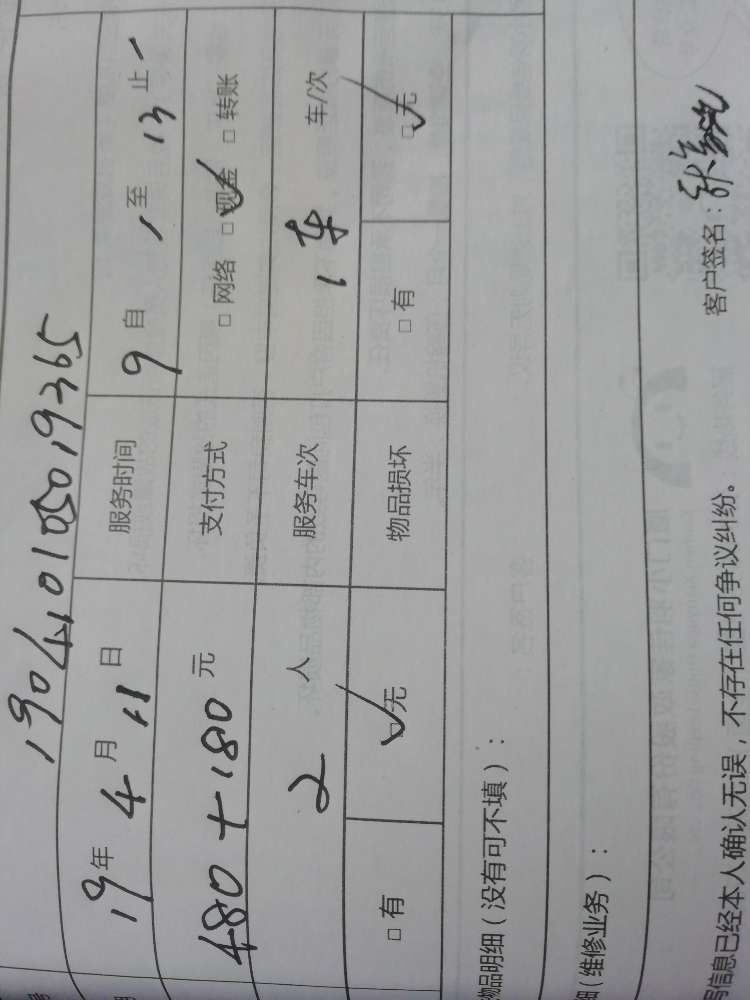 19年 4月 11日 服务时间 9 自 至 13 止
480+180 元 支付方式 □ 网络 □ 现金 □ 转账
2 人 服务车次 1车 车/次
□ 有 □ 无 物品损坏 □ 有 □ 无
物品明细（没有可不填）：
（维修业务）：
信息已经本人确认无误，不存在任何争议纠纷。 客户签名：张